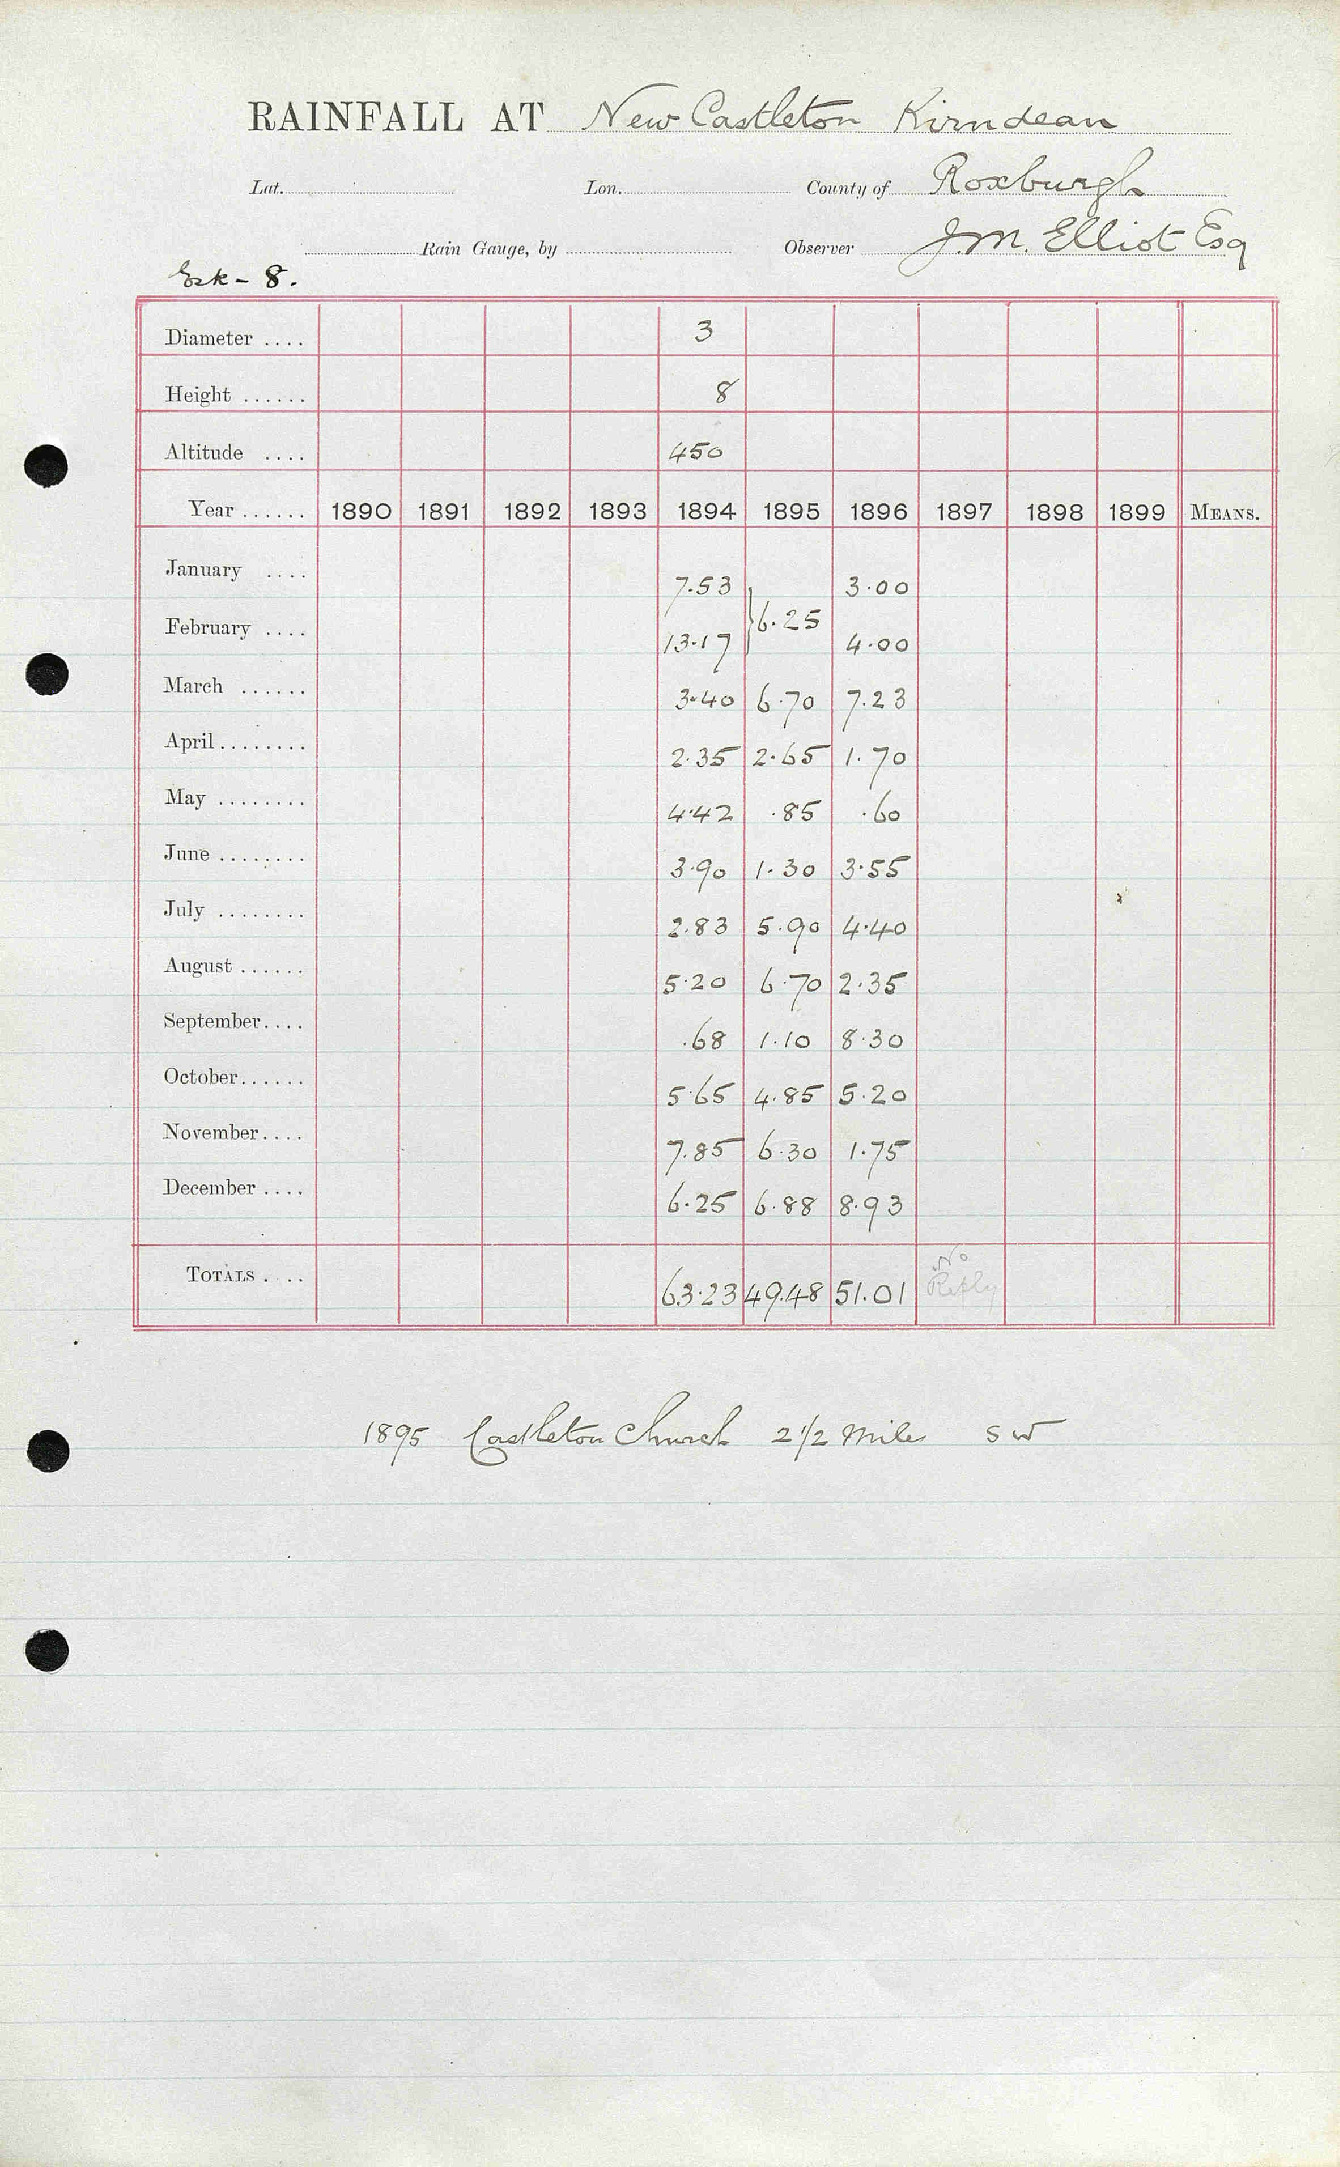 RAINFALL AT New Castleton Kirndean
Lat. Lon. County of Roxburgh
Rain Gauge, by Observer J.M. Elliot Esq
Esk - 8.
Diameter .... 3
Height ...... 8
Altitude .... 450
Year ...... 1890 1891 1892 1893 1894 1895 1896 1897 1898 1899 MEANS.
January .... 7.53 3.00
} 6.25
February .... 13.17 4.00
March ...... 3.40 6.70 7.23
April ........ 2.35 2.65 1.70
May ........ 4.42 .85 .60
June ........ 3.90 1.30 3.55
July ........ 2.83 5.90 4.40
August ...... 5.20 6.70 2.35
September .... .68 1.10 8.30
October ...... 5.65 4.85 5.20
November .... 7.85 6.30 1.75
December .... 6.25 6.88 8.93
TOTALS .... 63.23 49.48 51.01 No Reply
1895 Castleton Church 2 1/2 Miles SW